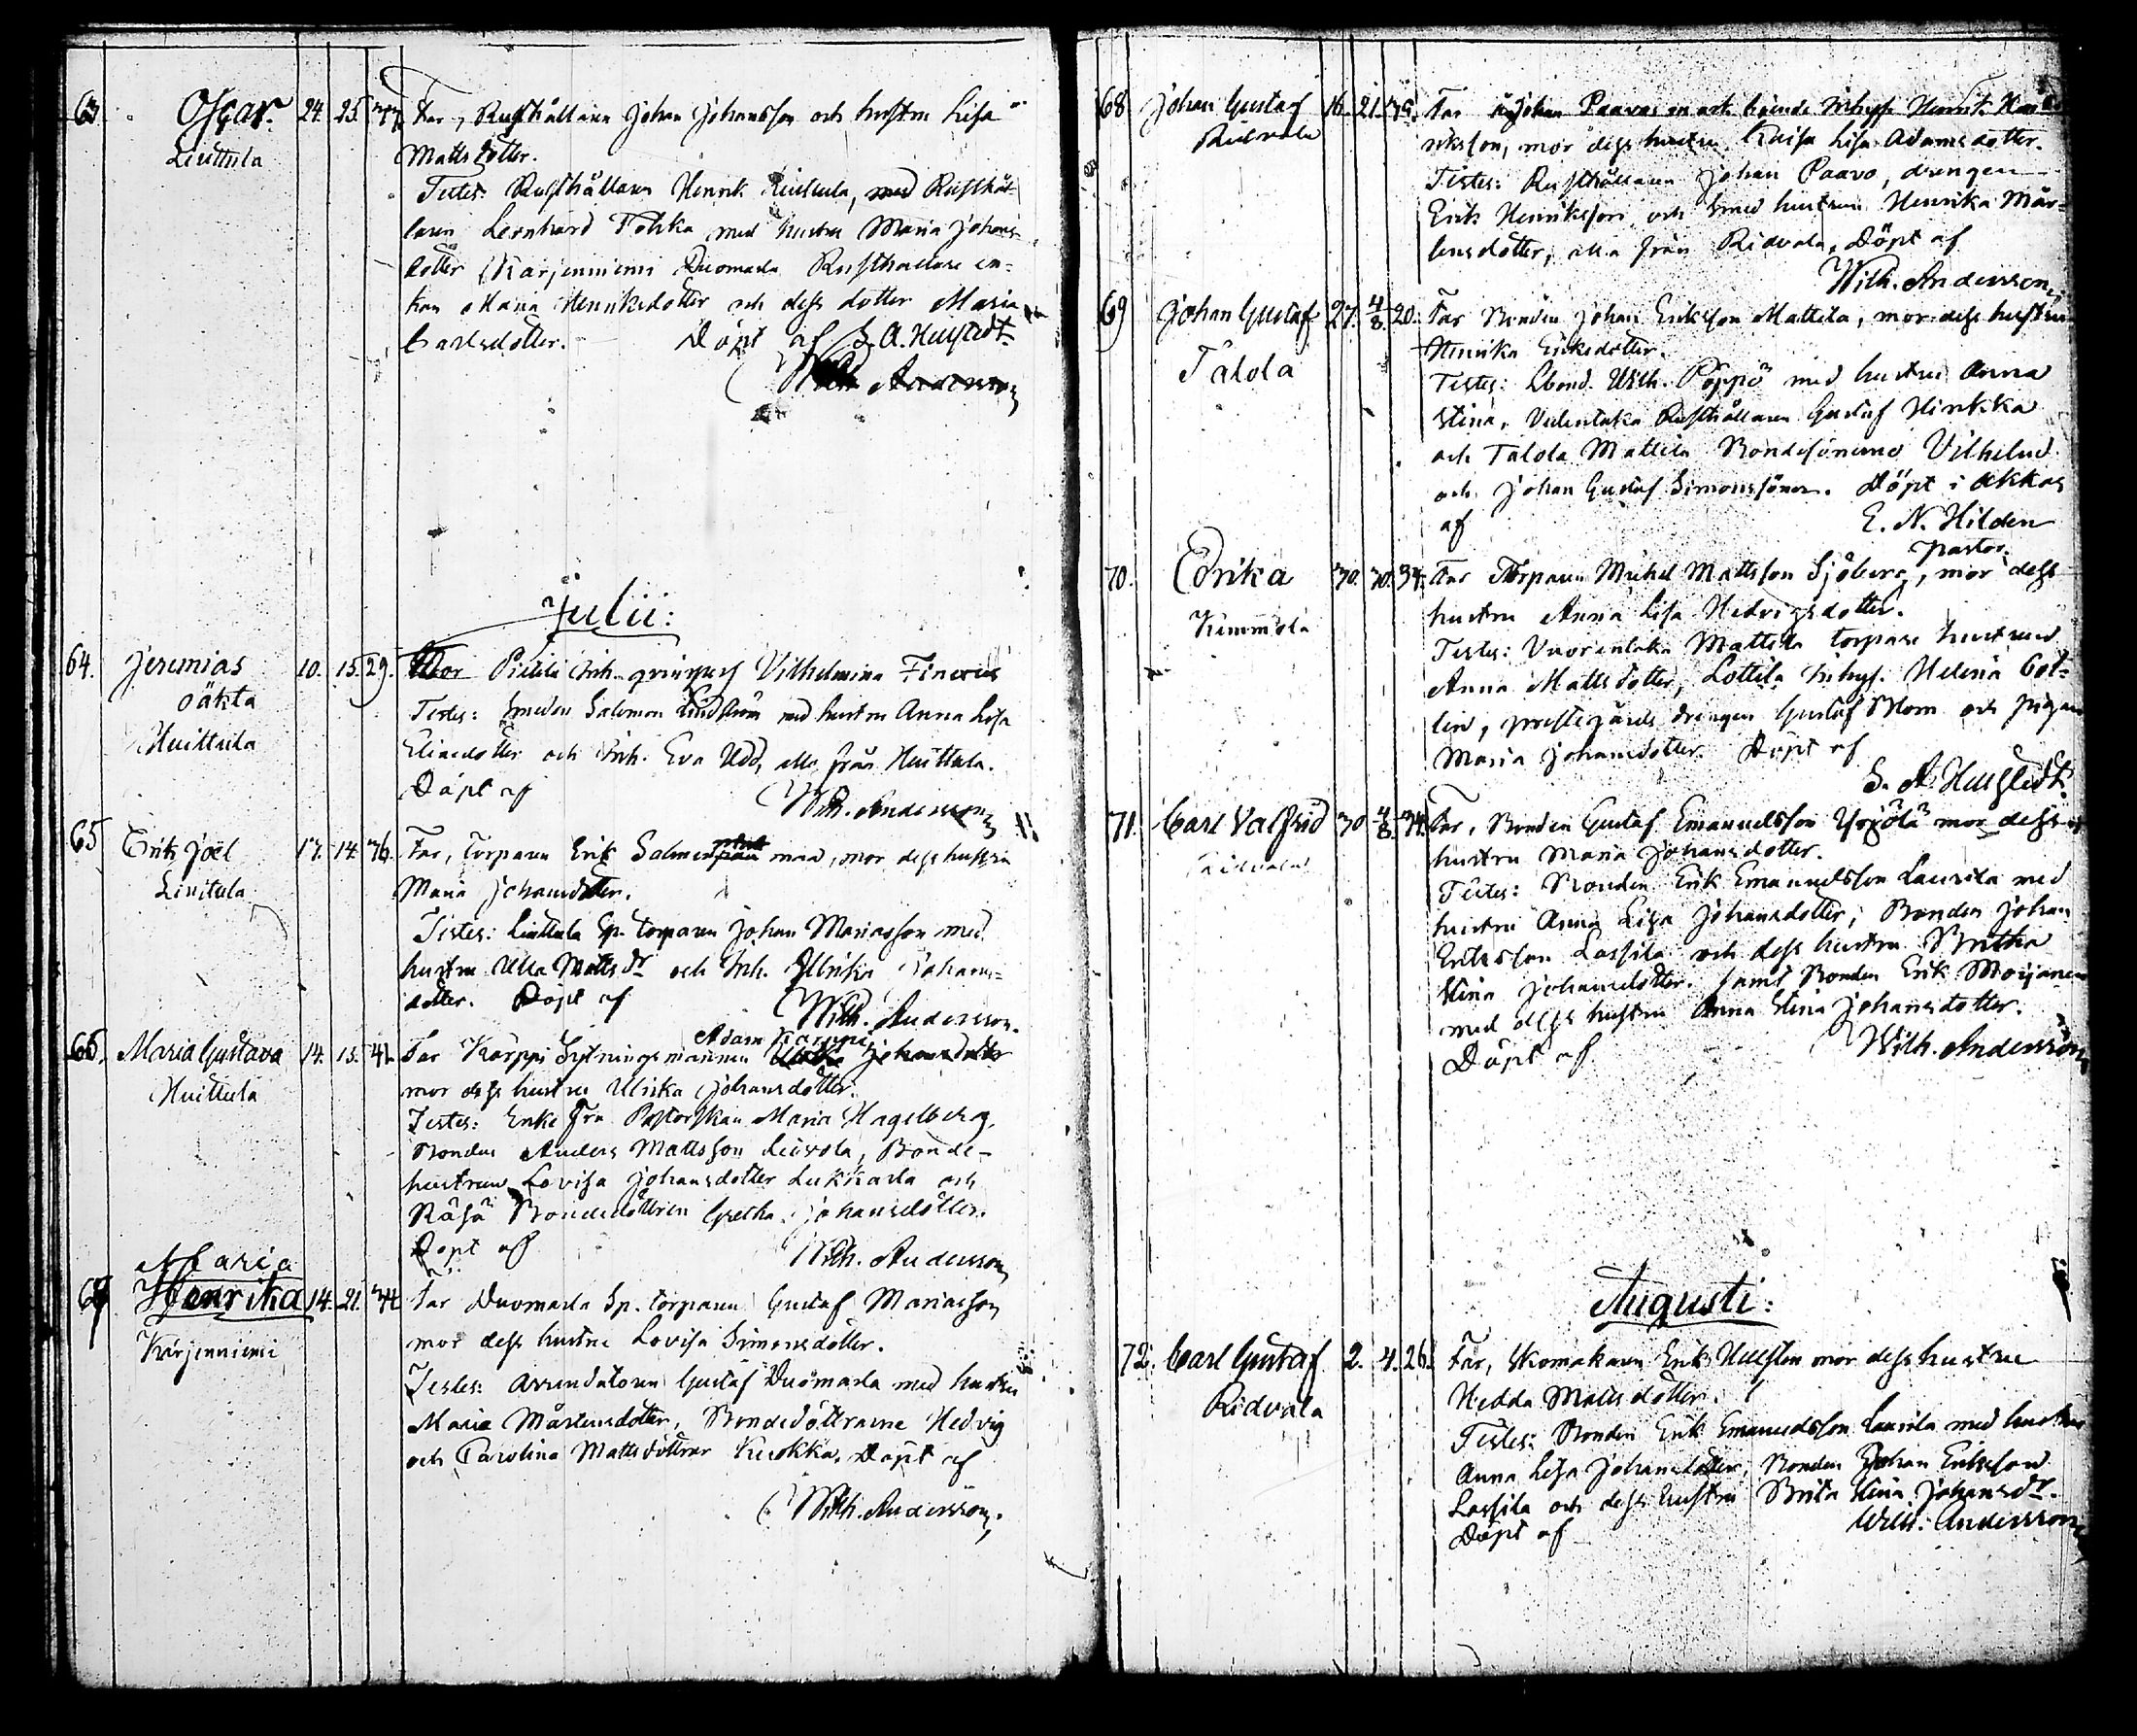 63 Oscar. 24. 25. 37 Far, Rusthållaren Johan Johansson och hustru Lisa
Liuttula Mattsdotter.
Testes: Rusthållaren Henrik Liuttula, med Rusthål-
laren Leonhard Tohka med hustru Maria Johans-
dotter Karjenniemi Duomarla Rusthållare en-
kan Maria Henriksdotter och dess dotter Maria
Carlsdotter. Döpt af S. A. Husstedt
Wilh. Andersson
Julii:
64. Jeremias 10. 15. 29. Mor Inh. Vilhelmina
oäkta Testes: Smeden Salomon Lindström med hustru Anna Lisa
Huittula Eliaedotter och Inh. Eva Udd, alla från Huittula.
Döpt af Wilh. Andersson
65 Erik Joel 17. 14. 36. Far, torparen Erik Salomonsson, mor dess hustru
Liuttula Maria Johansdotter.
Testes: Liuttula Sp. torparen Johan Mariasson med
hustru Ulla Matts dr och Inh. Ulrika Johans-
dotter. Döpt af Wilh. Andersson.
66. Maria Gustava 14. 15. 41 Far Karppi Sytningsmannen Adam Karppi
Huittula mor dess hustru Ulrika Johansdotter.
Testes: Enke Fru Pastorskan Maria Hagelberg,
Bonden Anders Mattsson Leuvola, Bonde-
hustrun Lovisa Johansdotter Lukkarla och
Räsä Bondedottren Gretha Johansdotter.
Döpt af Wilh. Andersson
Maria
67 Henrika 14. 21. 34 Far Duomarla Sp. torparen Gustaf Mariasson
Karjenniemi mor dess hustru Lovisa Simonsdotter.
Testes: Arrendatoren Gustaf Duomarla med hustru
Maria Mårtensdotter, Bondedöttrarne Hedvig
och Carolina Mattsdöttrar Kuokka. Döpt af
Wilh. Andersson.
68 Johan Gustaf 16. 21. 35. Far Johan Paavos Inhys Henrik Hen-
Ridvala riksson, mor dess hustru Kaisa Lisa Adamsdotter.
Testes: Rusthållaren Johan Paavo, drengen
Erik Henriksson och Smed hustrun Henrika Mår-
tensdotter, alla från Ridvala. Döpt af
Wilh. Andersson
69 Johan Gustaf 27. 4/8. 20. Far Bonden Johan Eriksson Mattila, mor dess hustru
Henrika Eriksdotter.
Tålola Testes: Lbond. Wilh. Poppo med hustru Anna
Stina, Rusthållaren Gustaf Hinkka
och Tålola Mattila Bondesönerne Vilhelm
och Johan Gustaf Simonssöner. Döpt i Akkas
af E. N. Hilden
pastor.
70. Edrika 30. 30. 34. Far Torparen Michel Mattsson Sjöberg, mor dess
Kemmola hustru Anna Lisa Hedvigsdotter.
Testes: Mattila torpare hustrun
Anna Mattsdotter, Lottila Inhys. Helena Göt-
lin, prestegårds drengen Gustaf Blom och pigan
Maria Johansdotter. Döpt af
S. A. Husstedt.
71. Carl Valfrid 30 4/8. 34. Far, Bonden Gustaf Emanuelsson Yrjölä mor dess
Ridvala hustru Maria Johansdotter.
Testes: Bonden Erik Emanuelsson Laurila med
hustru Anna Lisa Johansdotter, Bonden Johan
Eriksson Lassila och dess hustru Britha
Stina Johansdotter. samt Bonden Erik Moijanen
med dess hustru Anna Stina Johansdotter.
Döpt af Wilh. Andersson
Augusti:
72. Carl Gustaf 2. 4. 26. Far, Skomakaren Erik Hellsten mor dess hustru
Ridvala Hedda Mattsdotter.
Testes: Bonden Erik Emanuelsson Laurila med hustru
Anna Lisa Johansdotter, Bonden Johan Eriksson
Lassila och dess hustru Brita Stina Johansdr.
Döpt af Wilh. Andersson